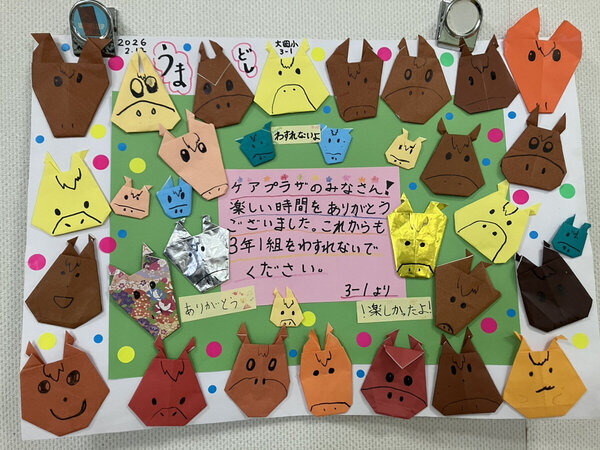 2026
2.12
うま
どし
大岡小
3-1
わすれないよ
ケアプラザのみなさん!
楽しい時間をありがとう
ございました。これからも
3年1組をわすれないで
ください。
3-1より
ありがとう
!楽しかったよ!